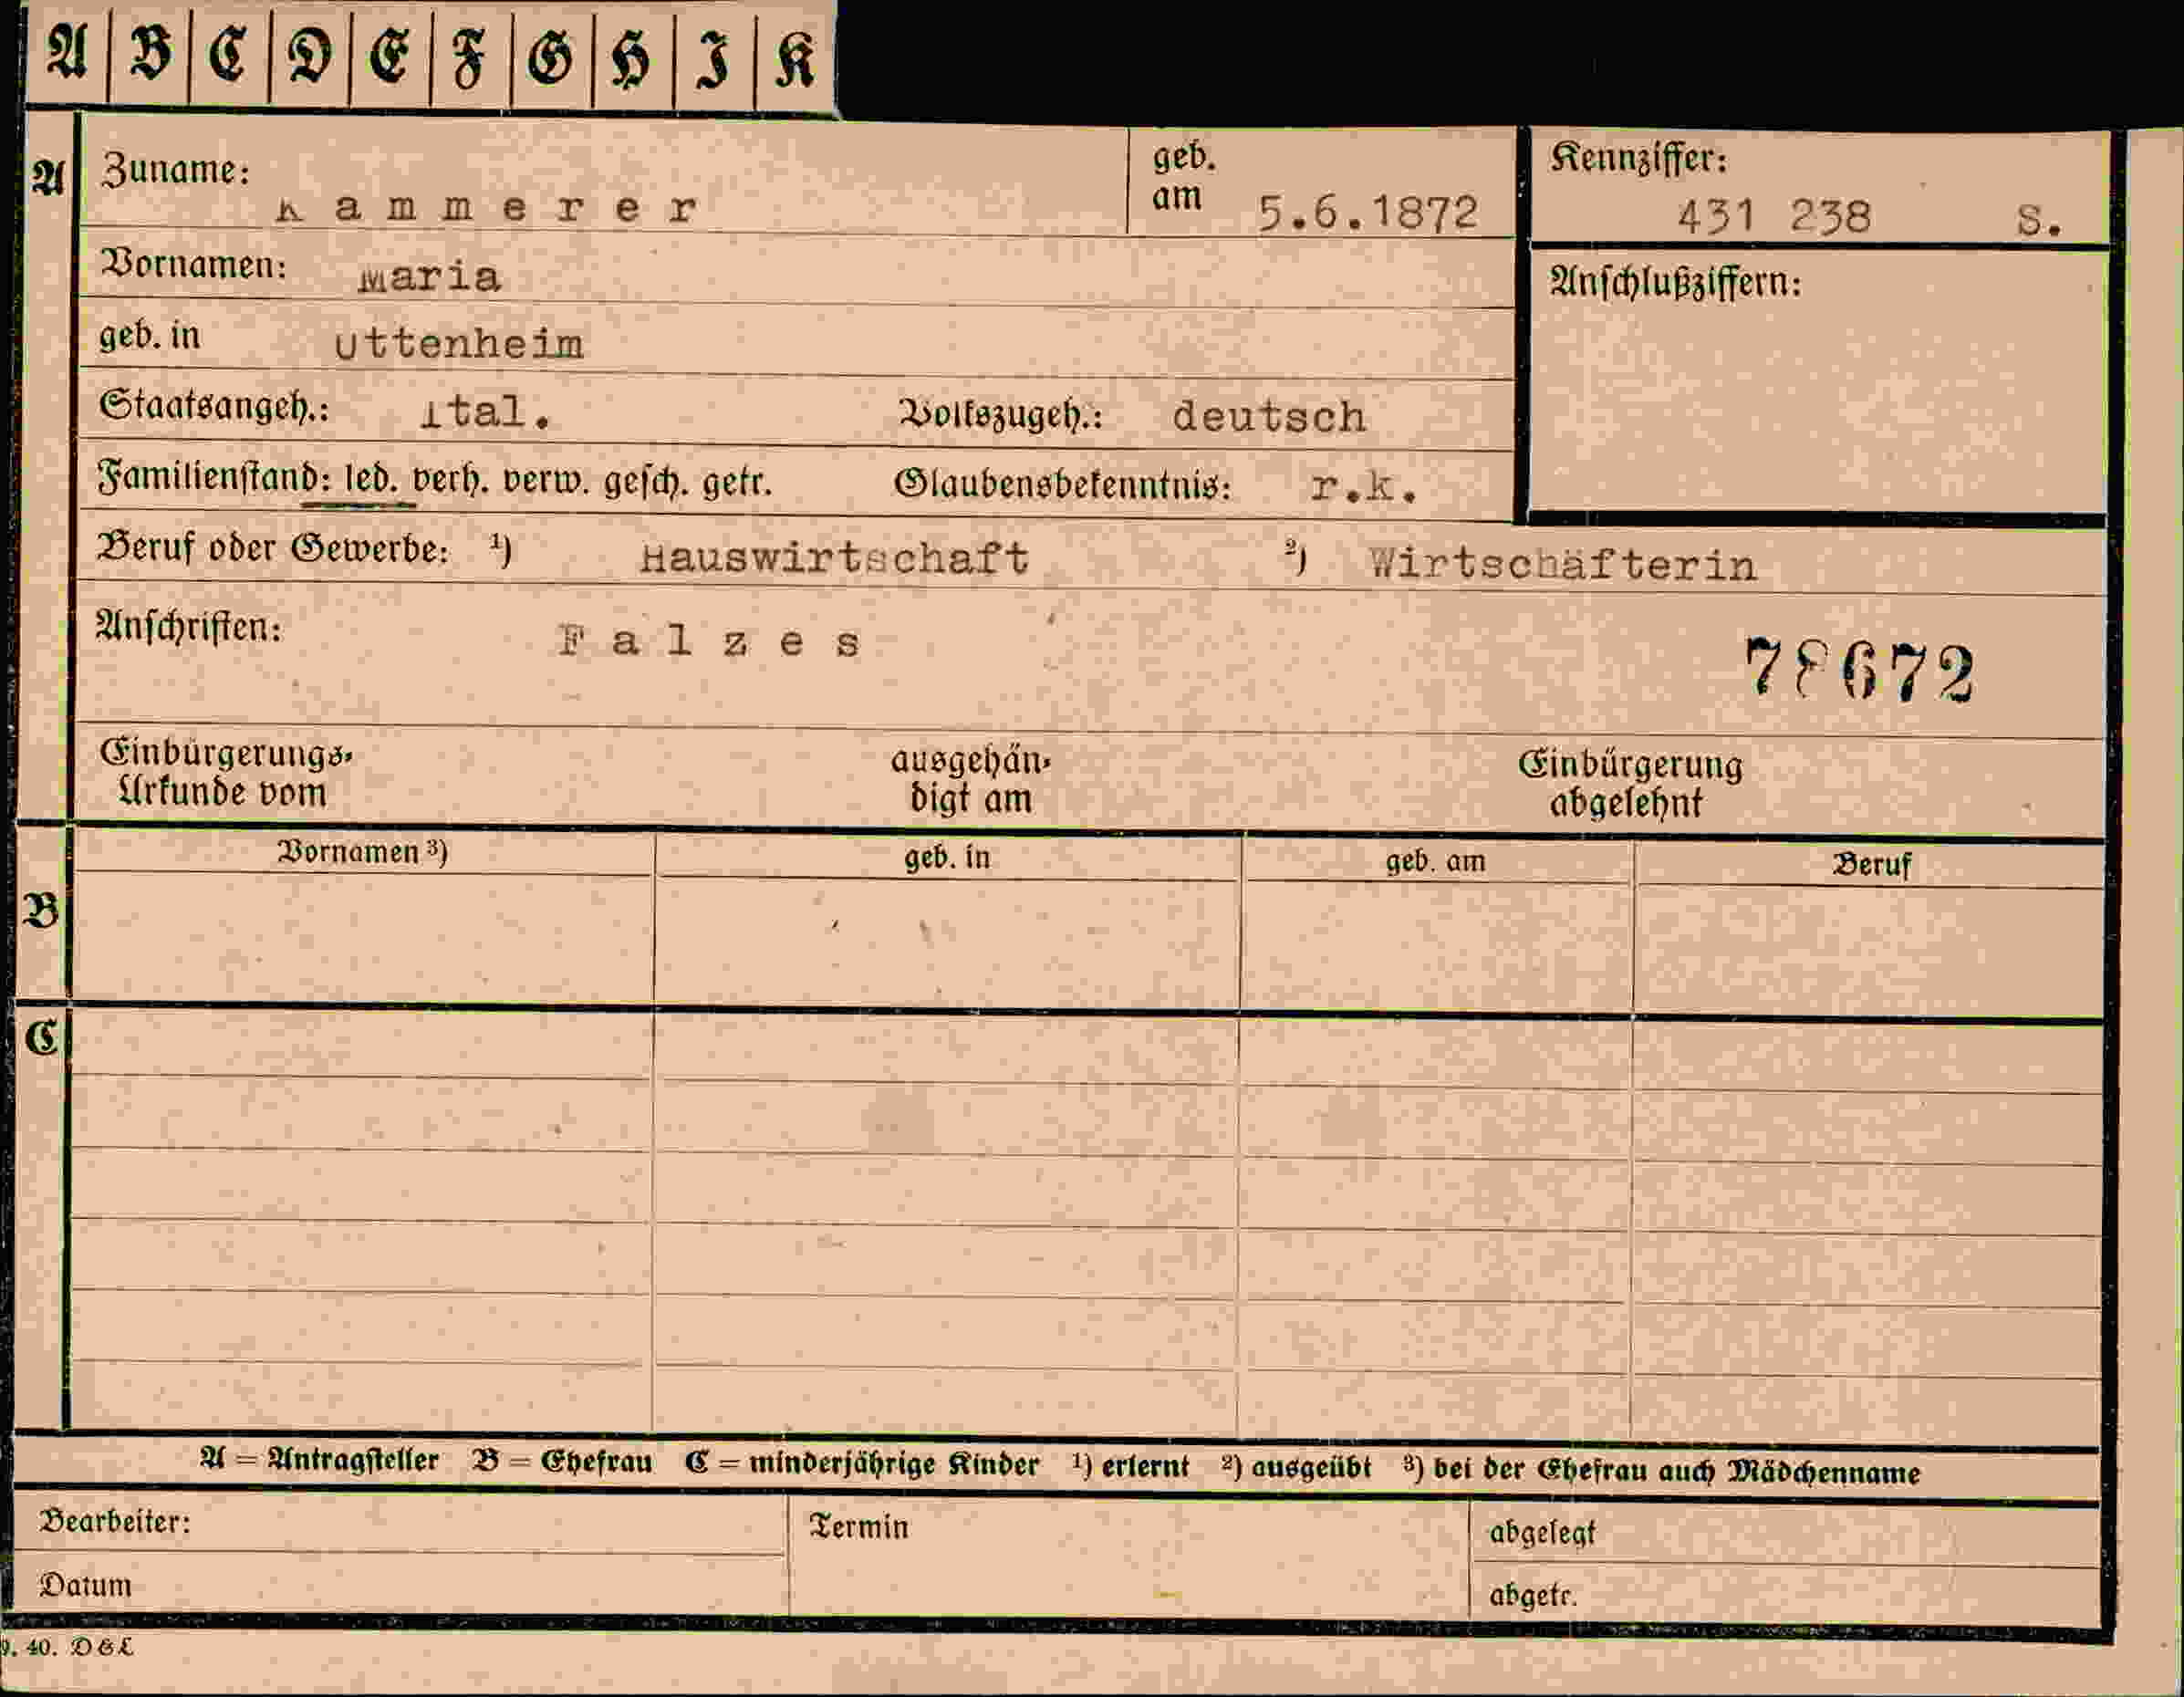 A B C D E F G H I K
A Zuname: Kammerer geb. am 5.6.1872 Kennziffer: 431 238 S.
Vornamen: Maria Anschlußziffern:
geb. in Uttenheim
Staatsangeh.: Ital. Volkszugeh.: deutsch
Familienstand: led. verh. verw. gesch. getr. Glaubensbekenntnis: r.k.
Beruf oder Gewerbe: ¹) Hauswirtschaft ²) Wirtschäfterin
Anschriften: Falzes 78672
Einbürgerungs- ausgehän- Einbürgerung
Urkunde vom digt am abgelehnt
Vornamen ³) geb. in geb. am Beruf
B
C
A = Antragsteller B = Ehefrau C = minderjährige Kinder ¹) erlernt ²) ausgeübt ³) bei der Ehefrau auch Mädchenname
Bearbeiter: Termin abgelegt
Datum abgetr.
9. 40. D & L